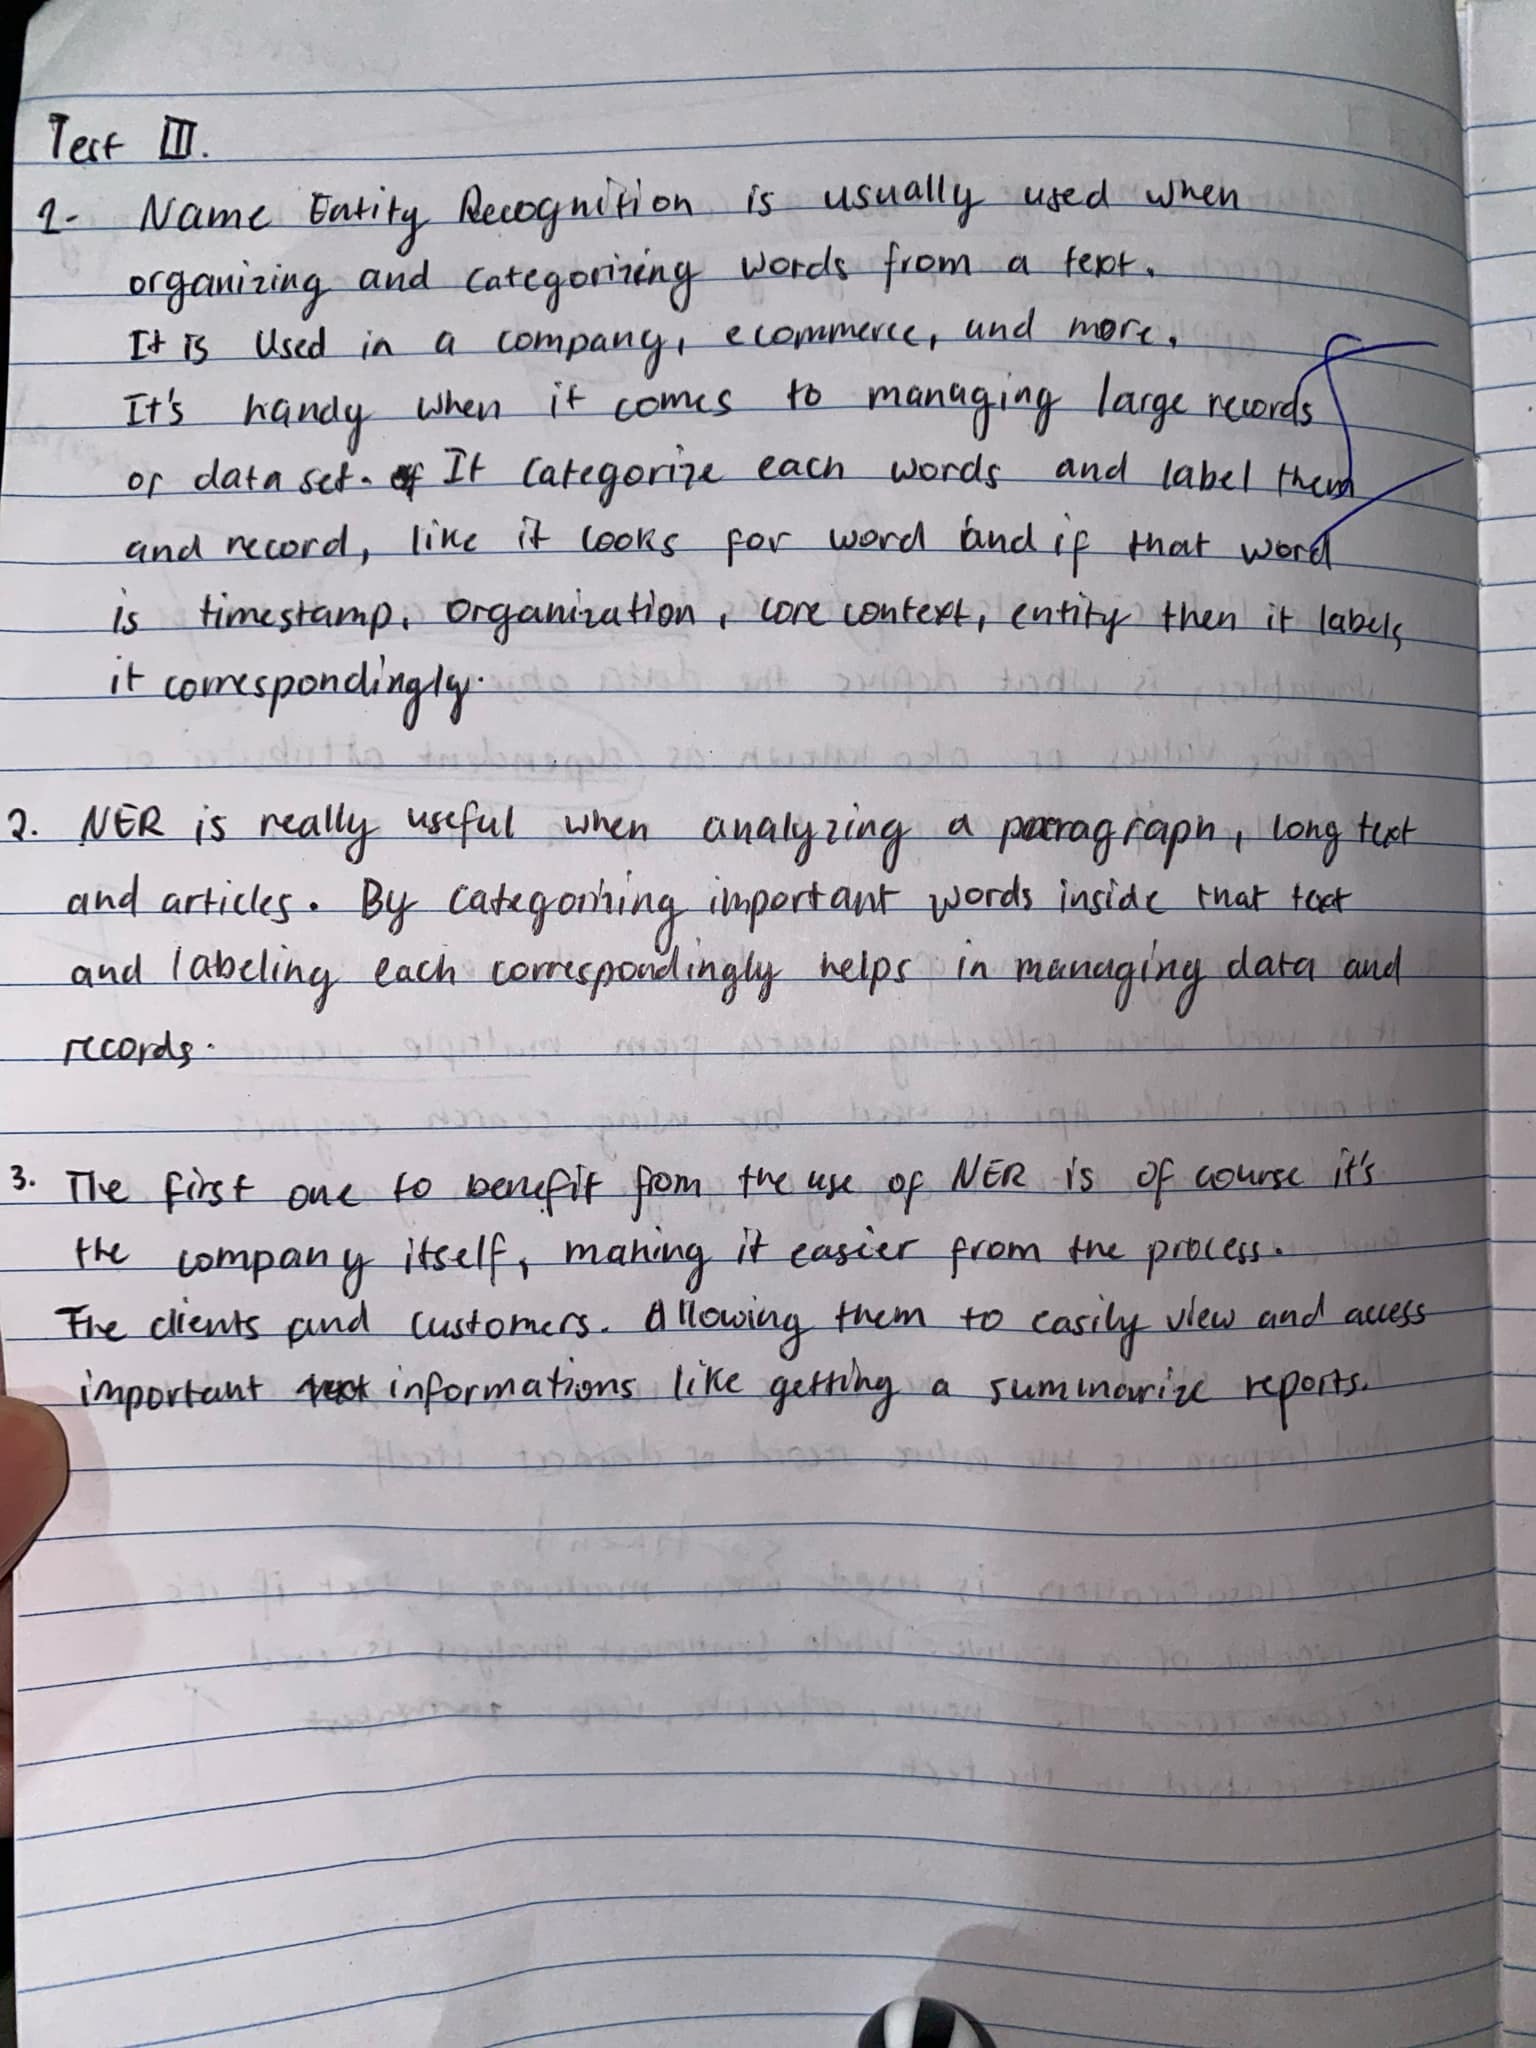 Test III.
1- Name Entity Recognition is usually used when
organizing and categorizing words from a text.
It is used in a company, ecommerce, and more.
It's handy when it comes to managing large records
or data set. It categorize each words and label them
and record, like it looks for word and if that word
is timestamp, organization, core context, entity then it labels
it correspondingly.
2. NER is really useful when analyzing a paragraph, long text
and articles. By categorizing important words inside that text
and labeling each correspondingly helps in managing data and
records.
3. The first one to benefit from the use of NER is of course it's
the company itself, making it easier from the process.
The clients and customers. Allowing them to easily view and access
important informations like getting a summarize reports.